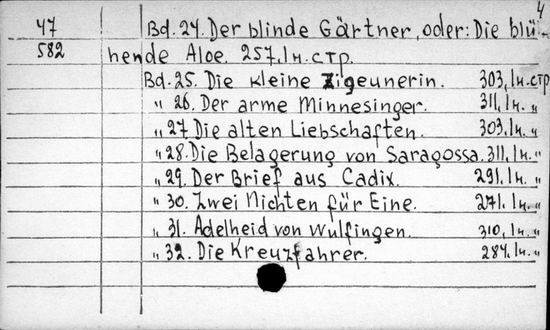 4
47 Bd. 24. Der blinde Gärtner, oder: Die blü-
582 hende Aloe. 257. Iн. стр.
Bd. 25. Die kleine Zigeunerin. 303, Iн. стр
" 26. Der arme Minnesinger. 311, Iн. "
" 27. Die alten Liebschaften. 303. Iн. "
" 28. Die Belagerung von Saragossa. 311, Iн. "
" 29. Der Brief aus Cadix. 291. Iн. "
" 30. Zwei Nichten für Eine. 271. Iн. "
" 31. Adelheid von Wulfingen. 310, Iн. "
" 32. Die Kreuzfahrer. 284. Iн. "